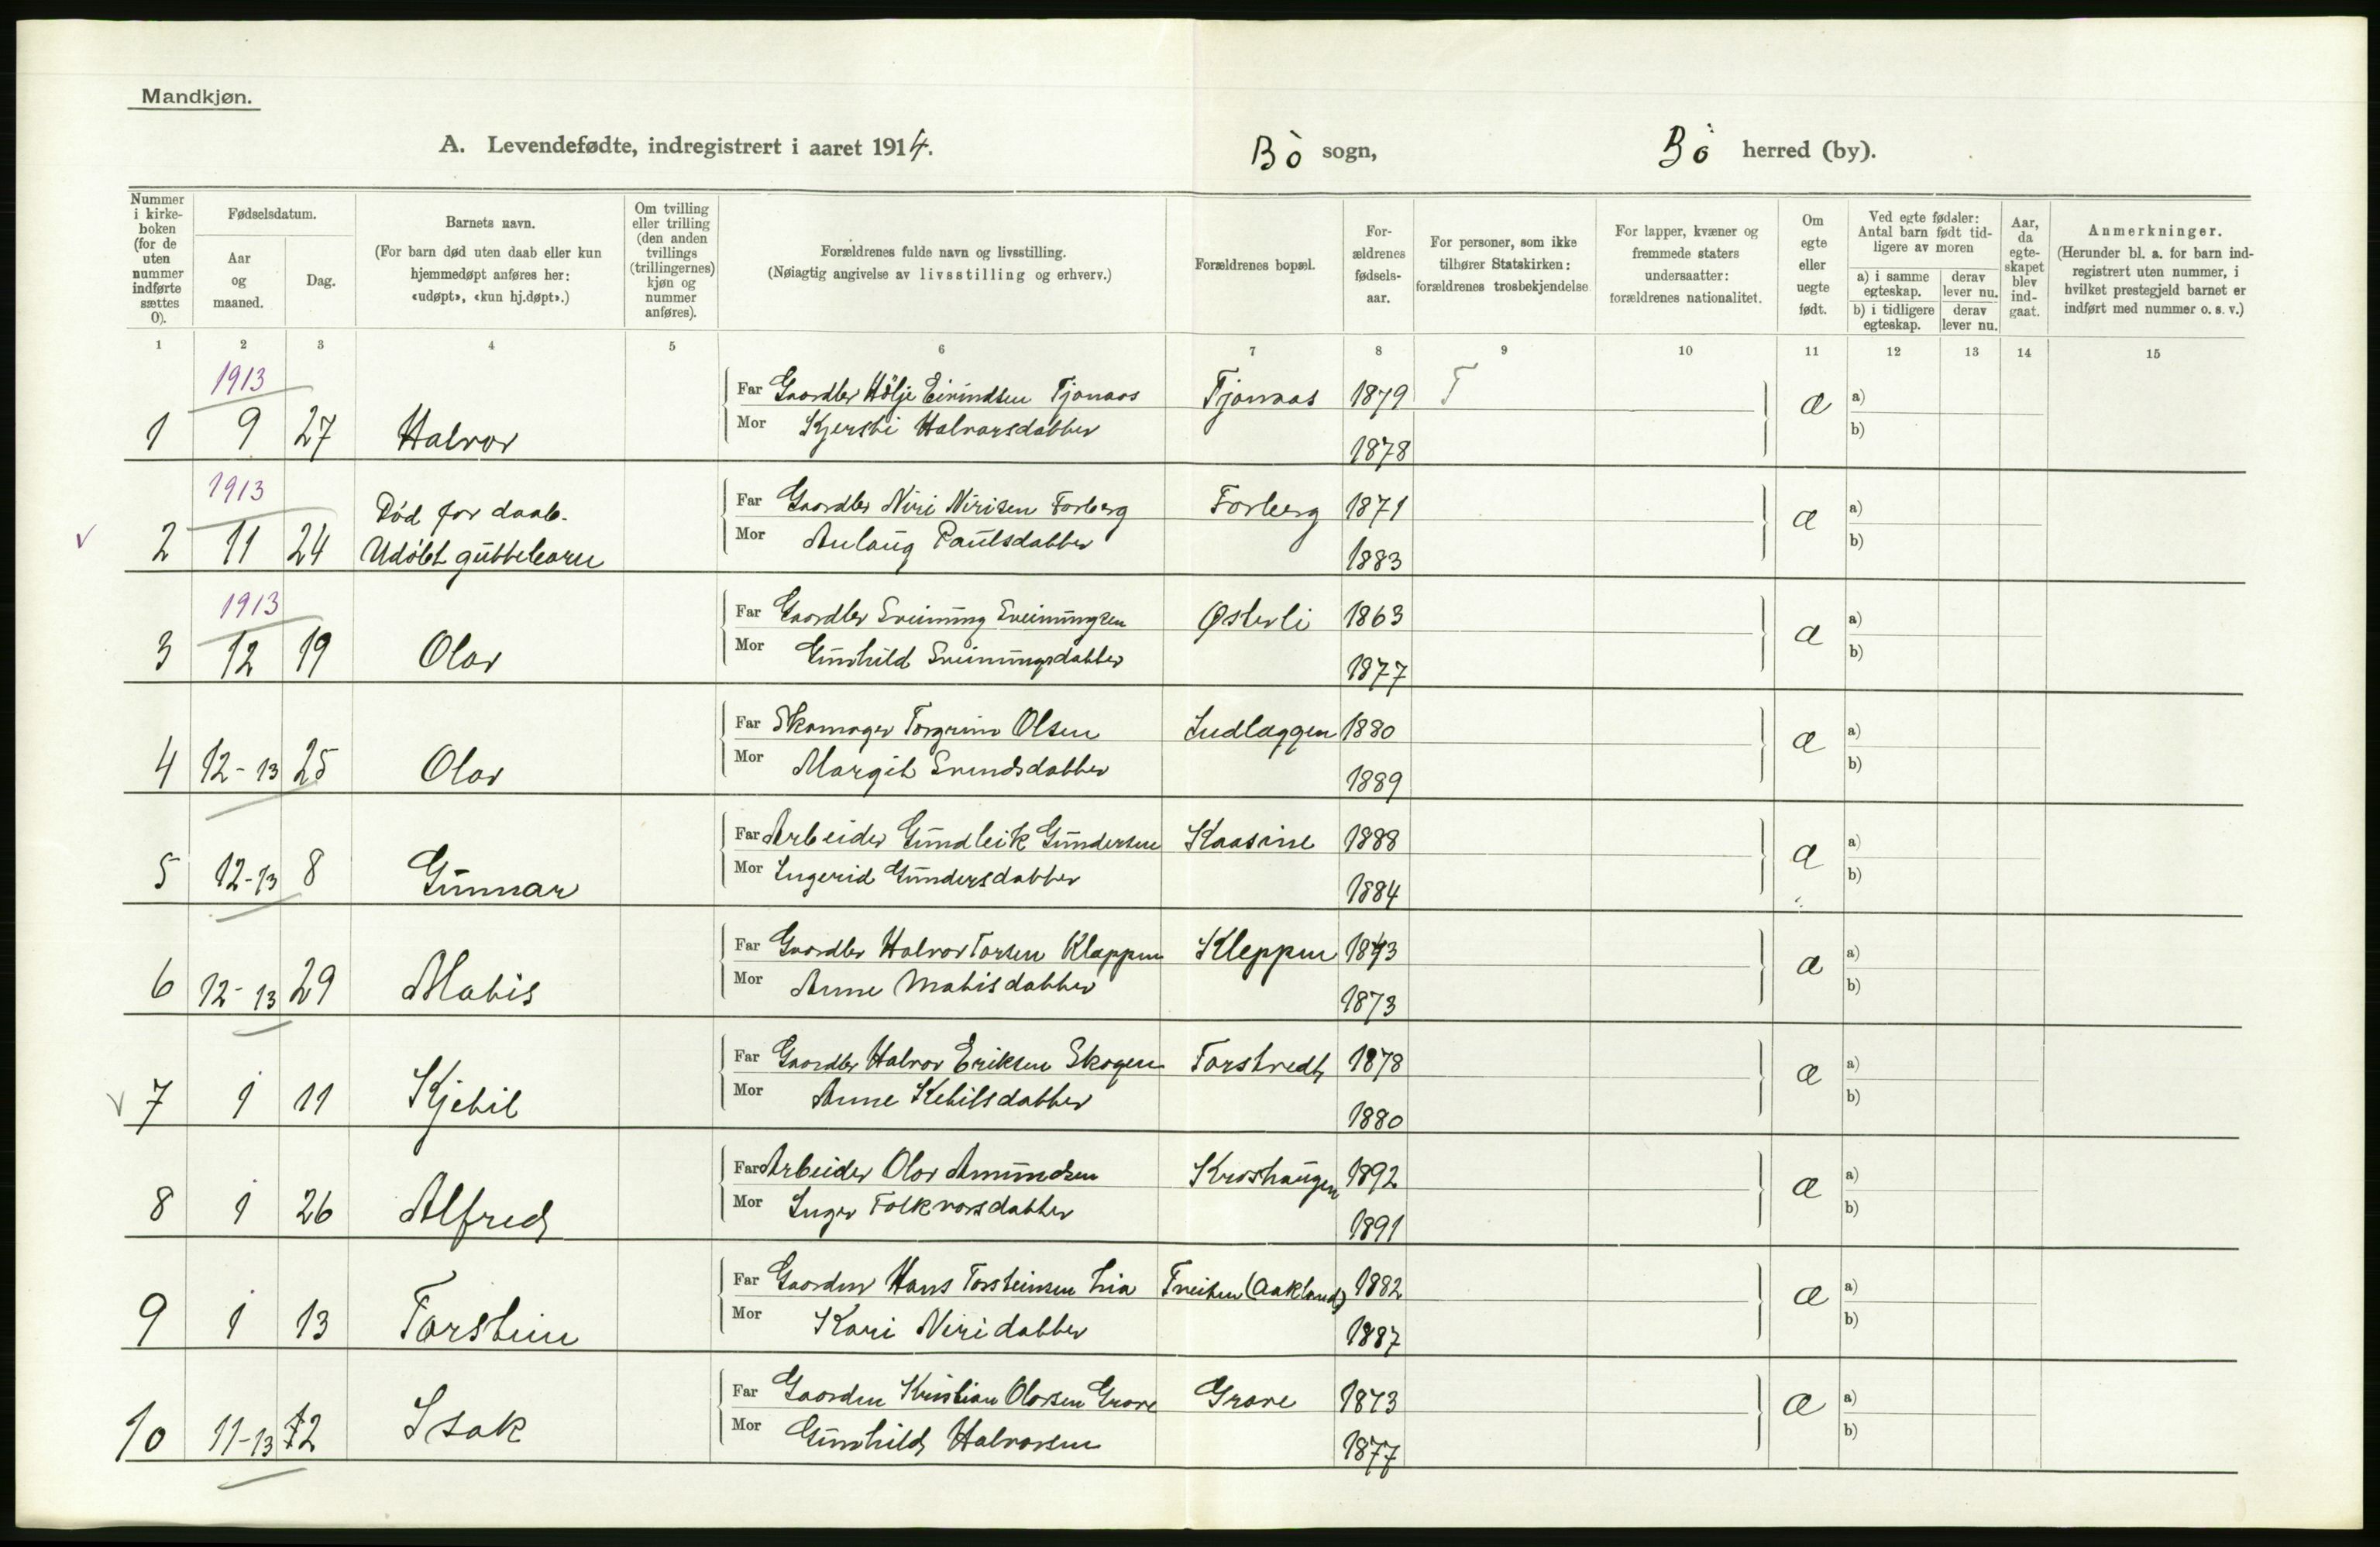 Mandkjøn.
A. Levendefødte, indregistrert i aaret 1914.
Bø sogn,
Bø herred (by).
Nummer i kirkeboken (for de uten nummer indførte sættes 0).
Fødselsdatum.
Aar og maaned.
Dag.
Barnets navn.
(For barn død uten daab eller kun hjemmedøpt anføres her: «udøpt», «kun hj.døpt».)
Om tvilling eller trilling (den anden tvillings (trillingernes) kjøn og nummer anføres).
Forældrenes fulde navn og livsstilling.
(Nøiagtig angivelse av livsstilling og erhverv.)
Forældrenes bopæl.
Forældrenes fødselsaar.
For personer, som ikke tilhører Statskirken: forældrenes trosbekjendelse
For lapper, kvæner og fremmede staters undersaatter: forældrenes nationalitet.
Om egte eller uegte født.
Ved egte fødsler: Antal barn født tidligere av moren
a) i samme egteskap.
derav lever nu.
b) i tidligere egteskap.
derav lever nu.
Aar, da egteskapet blev indgaat.
Anmerkninger.
(Herunder bl. a. for barn indregistrert uten nummer, i hvilket prestegjeld barnet er indført med nummer o. s. v.)
1 2 3 4 5 6 7 8 9 10 11 12 13 14 15
1913
Far Gaardbr Hölje Eivindsen Tjonaas Tjonaas 1879 T
1 9 27 Halvor Mor Kjersti Halvorsdatter 1878 æ a) b)
1913
Død før daab. Far Gaardbr Niri Nirisen Forberg Forberg 1871
2 11 24 Udøbt guttebarn Mor Aulaug Paulsdatter 1883 æ a) b)
1913
Far Gaardbr Sveinung Sveinungsen Østerli 1863
3 12 19 Olav Mor Gunhild Sveinungsdatter 1877 æ a) b)
Far Skomager Torgrim Olsen Indlæggen 1880
4 12-13 25 Olav Mor Margit Svendsdatter 1889 æ a) b)
Far Arbeider Gundleik Gundersen Kaasine 1888
5 12-13 8 Gunnar Mor Ingerid Gundersdatter 1884 æ a) b)
Far Gaardbr Halvor Torsen Kleppen Kleppen 1873
6 12-13 29 Matis Mor Anne Matisdatter 1873 æ a) b)
Far Gaardbr Halvor Eriksen Skogen Torstvedt 1878
7 1 11 Kjetil Mor Anne Ketilsdatter 1880 æ a) b)
Far Arbeider Olav Amundsen Kroshaugen 1892
8 1 26 Alfred Mor Inger Folkvorsdatter 1891 æ a) b)
Far Gaardm Hans Torsteinsen Lia Treiten (Aakland) 1882
9 1 13 Torstein Mor Kari Niridatter 1887 æ a) b)
Far Gaardm Kristian Olavsen Grave Grave 1873
10 11-13 12 Isak Mor Gunhild Halvorsen 1877 æ a) b)